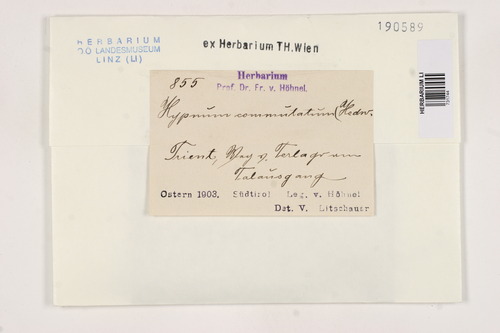 190589
HERBARIUM
OÖ. LANDESMUSEUM
LINZ (LI)
ex Herbarium TH.Wien
HERBARIUM LI
855
Herbarium
Prof. Dr. Fr. v. Höhnel.
Hypnum commutatum Hedw.
Trient, Weg v. Terlago am
Talausgang
Ostern 1903. Südtirol Leg. v. Höhnel
Det. V. Litschauer